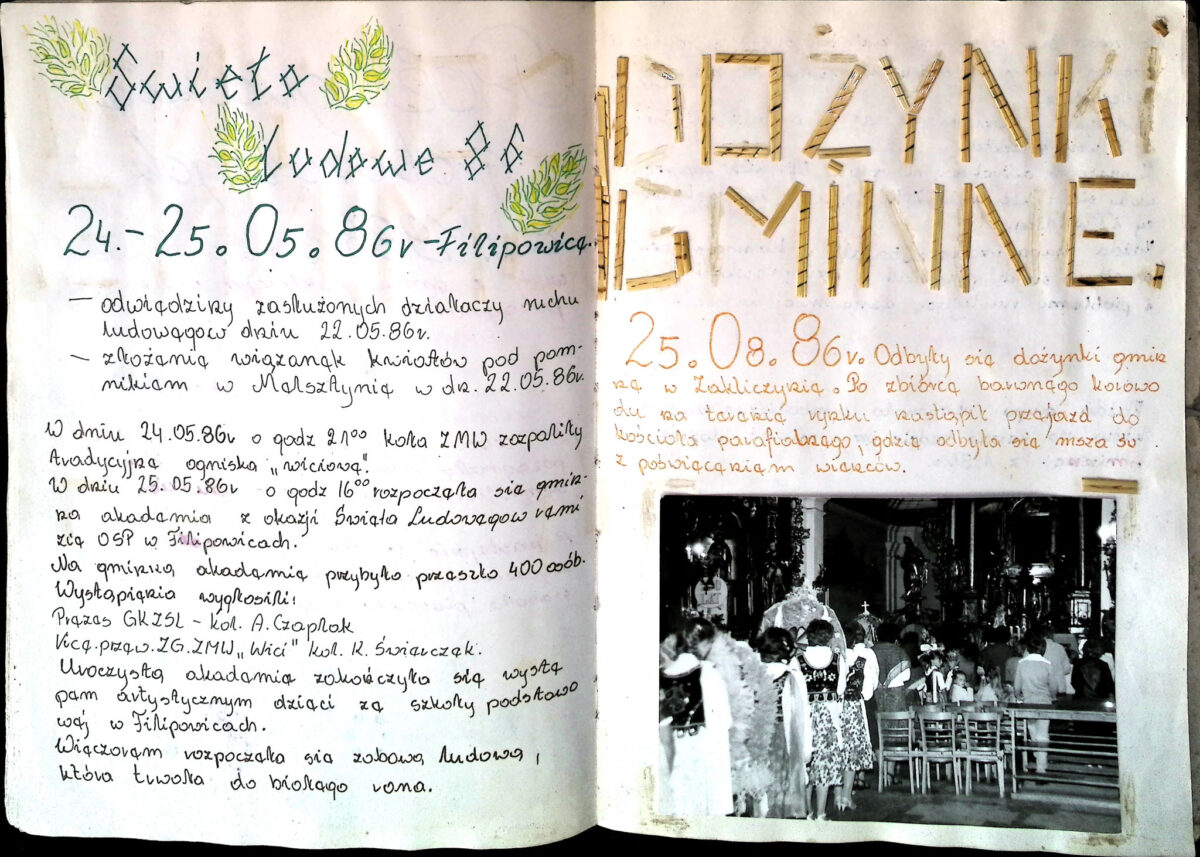 Święto
Ludowe 86
24.-25.05.86r - Filipowice.
— odwiedziny zasłużonych działaczy ruchu
ludowego w dniu 22.05.86r.
— złożenie wiązanek kwiatów pod pom-
nikiem w Melsztynie w dn. 22.05.86r.
W dniu 24.05.86r o godz 21⁰⁰ koła ZMW zozpaliły
tradycyjne ogniska „wiciowe".
W dniu 25.05.86r o godz 16⁰⁰ rozpoczęła się gmin-
na akademia z okazji Święta Ludowego w remi
zie OSP w Filipowicach.
Na gminną akademię przybyło przeszło 400 osób.
Wystąpienia wygłosili:
Prezes GKZSL - kol. A. Czaplak
Vice.przew. ZG.ZMW „Wici" kol. K. Świerczek.
Uroczysta akademia zakończyła się wystę
pem artystycznym dzieci ze szkoły podstawo
wej w Filipowicach.
Wieczorem rozpoczęła się zabawa ludowa,
która trwała do białego rana.
DOŻYNKI
GMINNE.
25.08.86r. Odbyły się dożynki gmin
ne w Zakliczynie. Po zbiórce barwnego korowo
du na terenie rynku nastąpił przejazd do
kościoła parafialnego, gdzie odbyła się msza św
z poświęceniem wieńców.